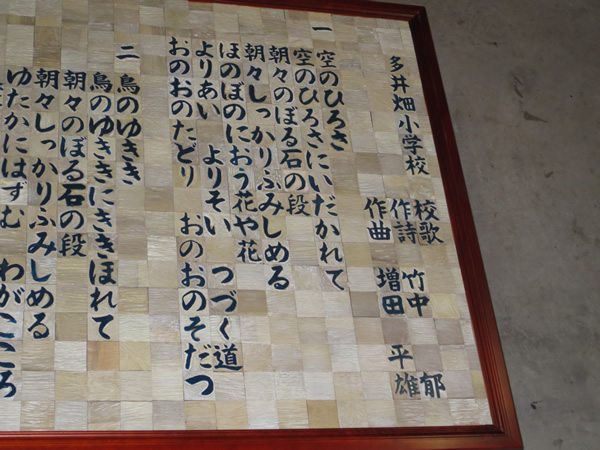 多井畑小学校 校歌
作詩 竹中 郁
作曲 増田 平雄
一
空のひろさ
空のひろさにいだかれて
朝々のぼる石の段
朝々しっかりふみしめる
ほのぼのにおう花や花
よりあい よりそい つづく道
おのおのたどり おのおのそだつ
二
鳥のゆきき
鳥のゆききにききほれて
朝々のぼる石の段
朝々しっかりふみしめる
ゆたかにはずむ わがこころ